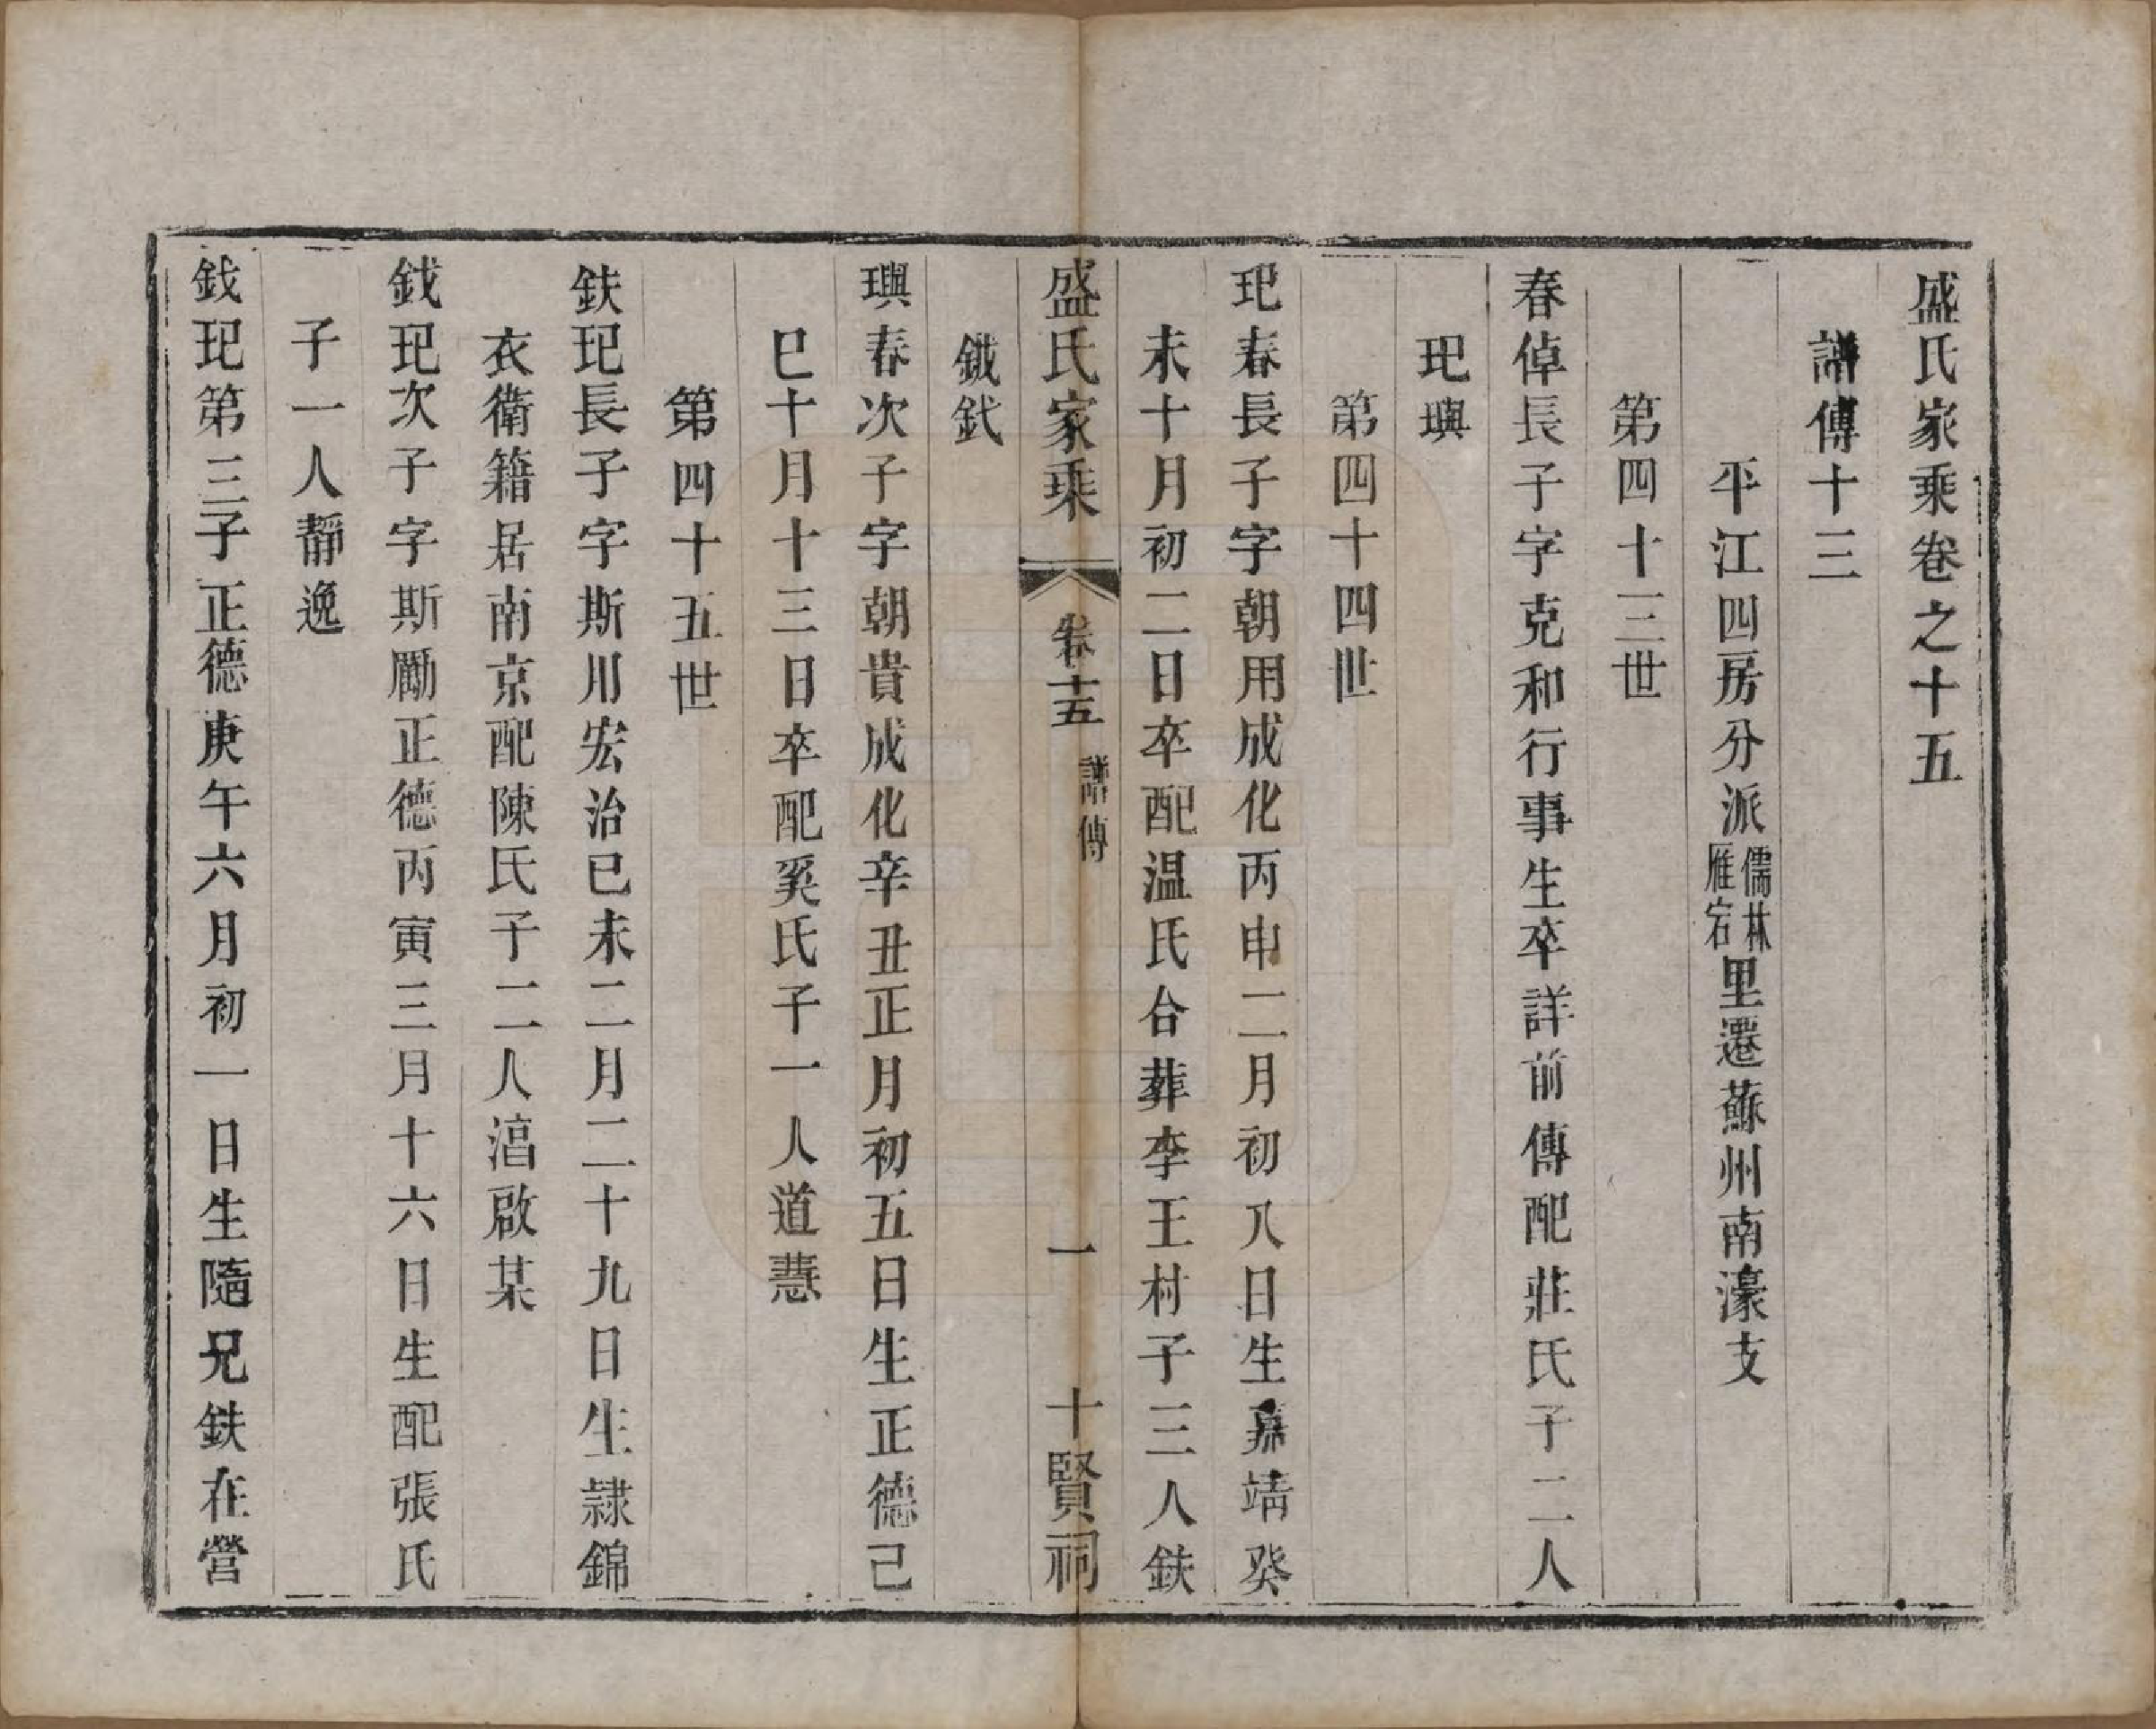 盛氏家乘卷之十五
譜傳十三
平江四房分派儒林雁宕里遷蘇州南濠支
第四十三世
春倬長子字克和行事生卒詳前傳配莊氏子二人
玘璵
第四十四世
玘春長子字朝用成化丙申二月初八日生嘉靖癸
未十月初二日卒配温氏合葬李王村子三人鈇
鉞釴
璵春次子字朝貴成化辛丑正月初五日生正德己
巳十月十三日卒配奚氏子一人道慧
第四十五世
鈇玘長子字斯川宏治巳未二月二十九日生隷錦
衣衛籍居南京配陳氏子二人淐啟某
鉞玘次子字斯勵正德丙寅三月十六日生配張氏
子一人靜逸
釴玘第三子正德庚午六月初一日生隨兄鈇在營
盛氏家乘
卷十五
譜傳
一
十賢祠